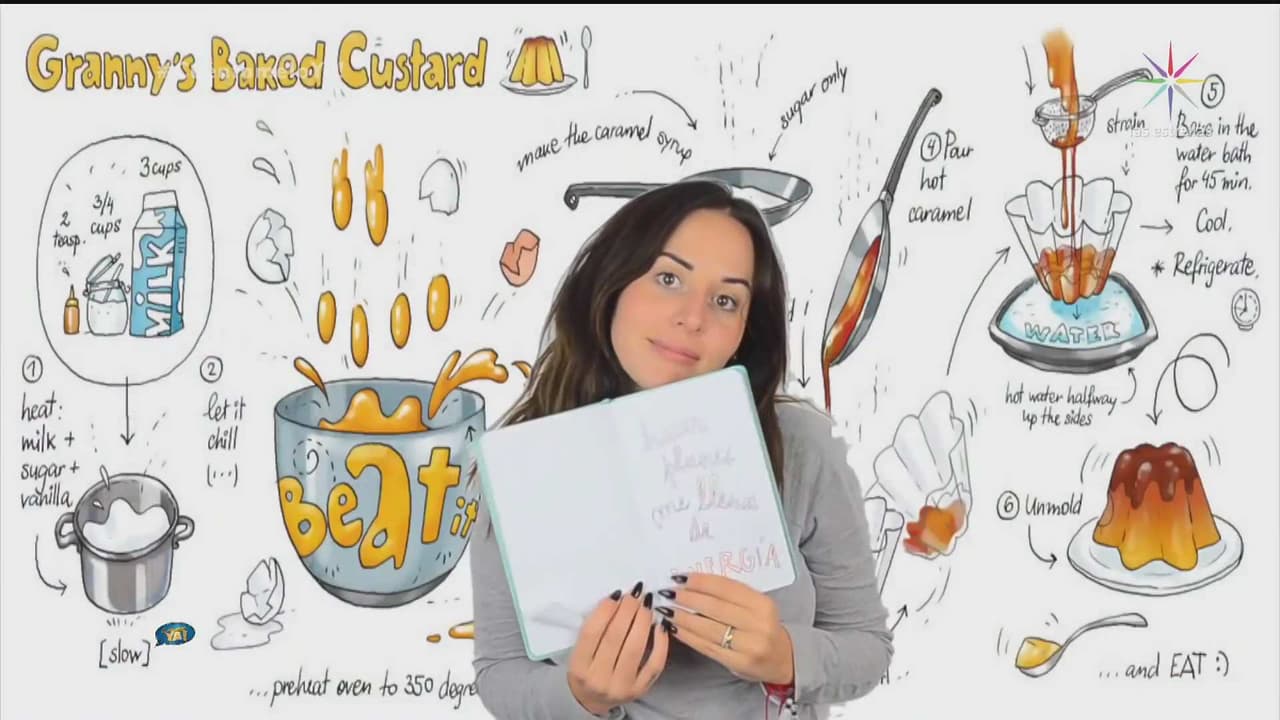 Granny's Baked Custard
3 cups
3/4
cups
2
teasp.
MILK
1
heat:
milk +
sugar +
vanilla
[slow]
YA!
2
let it
chill
(...)
Beat it
...preheat oven to 350 degre
make the caramel syrup
sugar only
4 Pour
hot
caramel
strain
las estrellas
5
Bake in the
water bath
for 45 min.
Cool.
* Refrigerate.
WATER
hot water halfway
up the sides
6 Unmold
...and EAT :)
hacer
planes
me llena
de
ENERGÍA